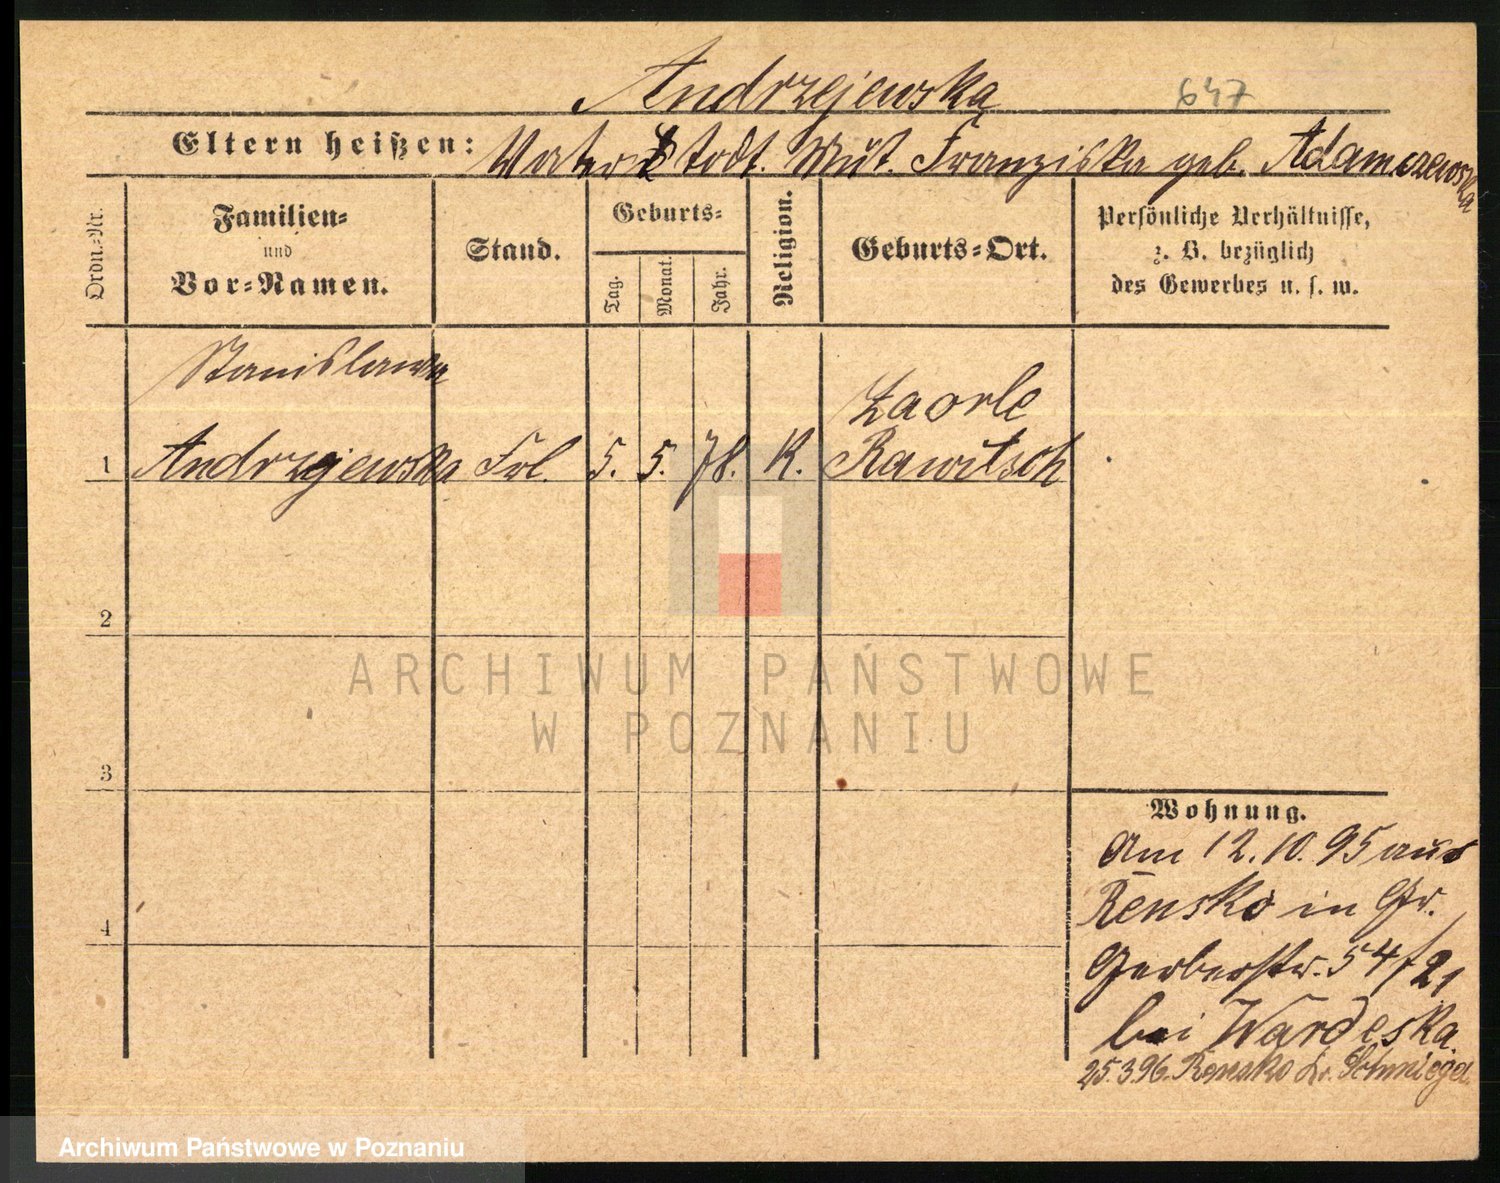 Andrzejewska
647
Eltern heißen: Vater todt. Mut. Franziska geb. Adamczewska
Ordn.-Nr.
Familien-
und
Vor-Namen.
Stand.
Geburts-
Tag.
Monat.
Jahr.
Religion.
Geburts-Ort.
Persönliche Verhältnisse,
z. B. bezüglich
des Gewerbes u. s. w.
Stanislawa
Zaorle
1 Andrzejewska Frl. 5. 5. 78. K. Rawitsch
2
3
4
Wohnung.
Am 12.10.95 aus
Rensko in Gr.
Gerberstr. 54/21
bei Wardeska
25.3.96. Rensko Kr. Schmiegel
ARCHIWUM PAŃSTWOWE
W POZNANIU
Archiwum Państwowe w Poznaniu